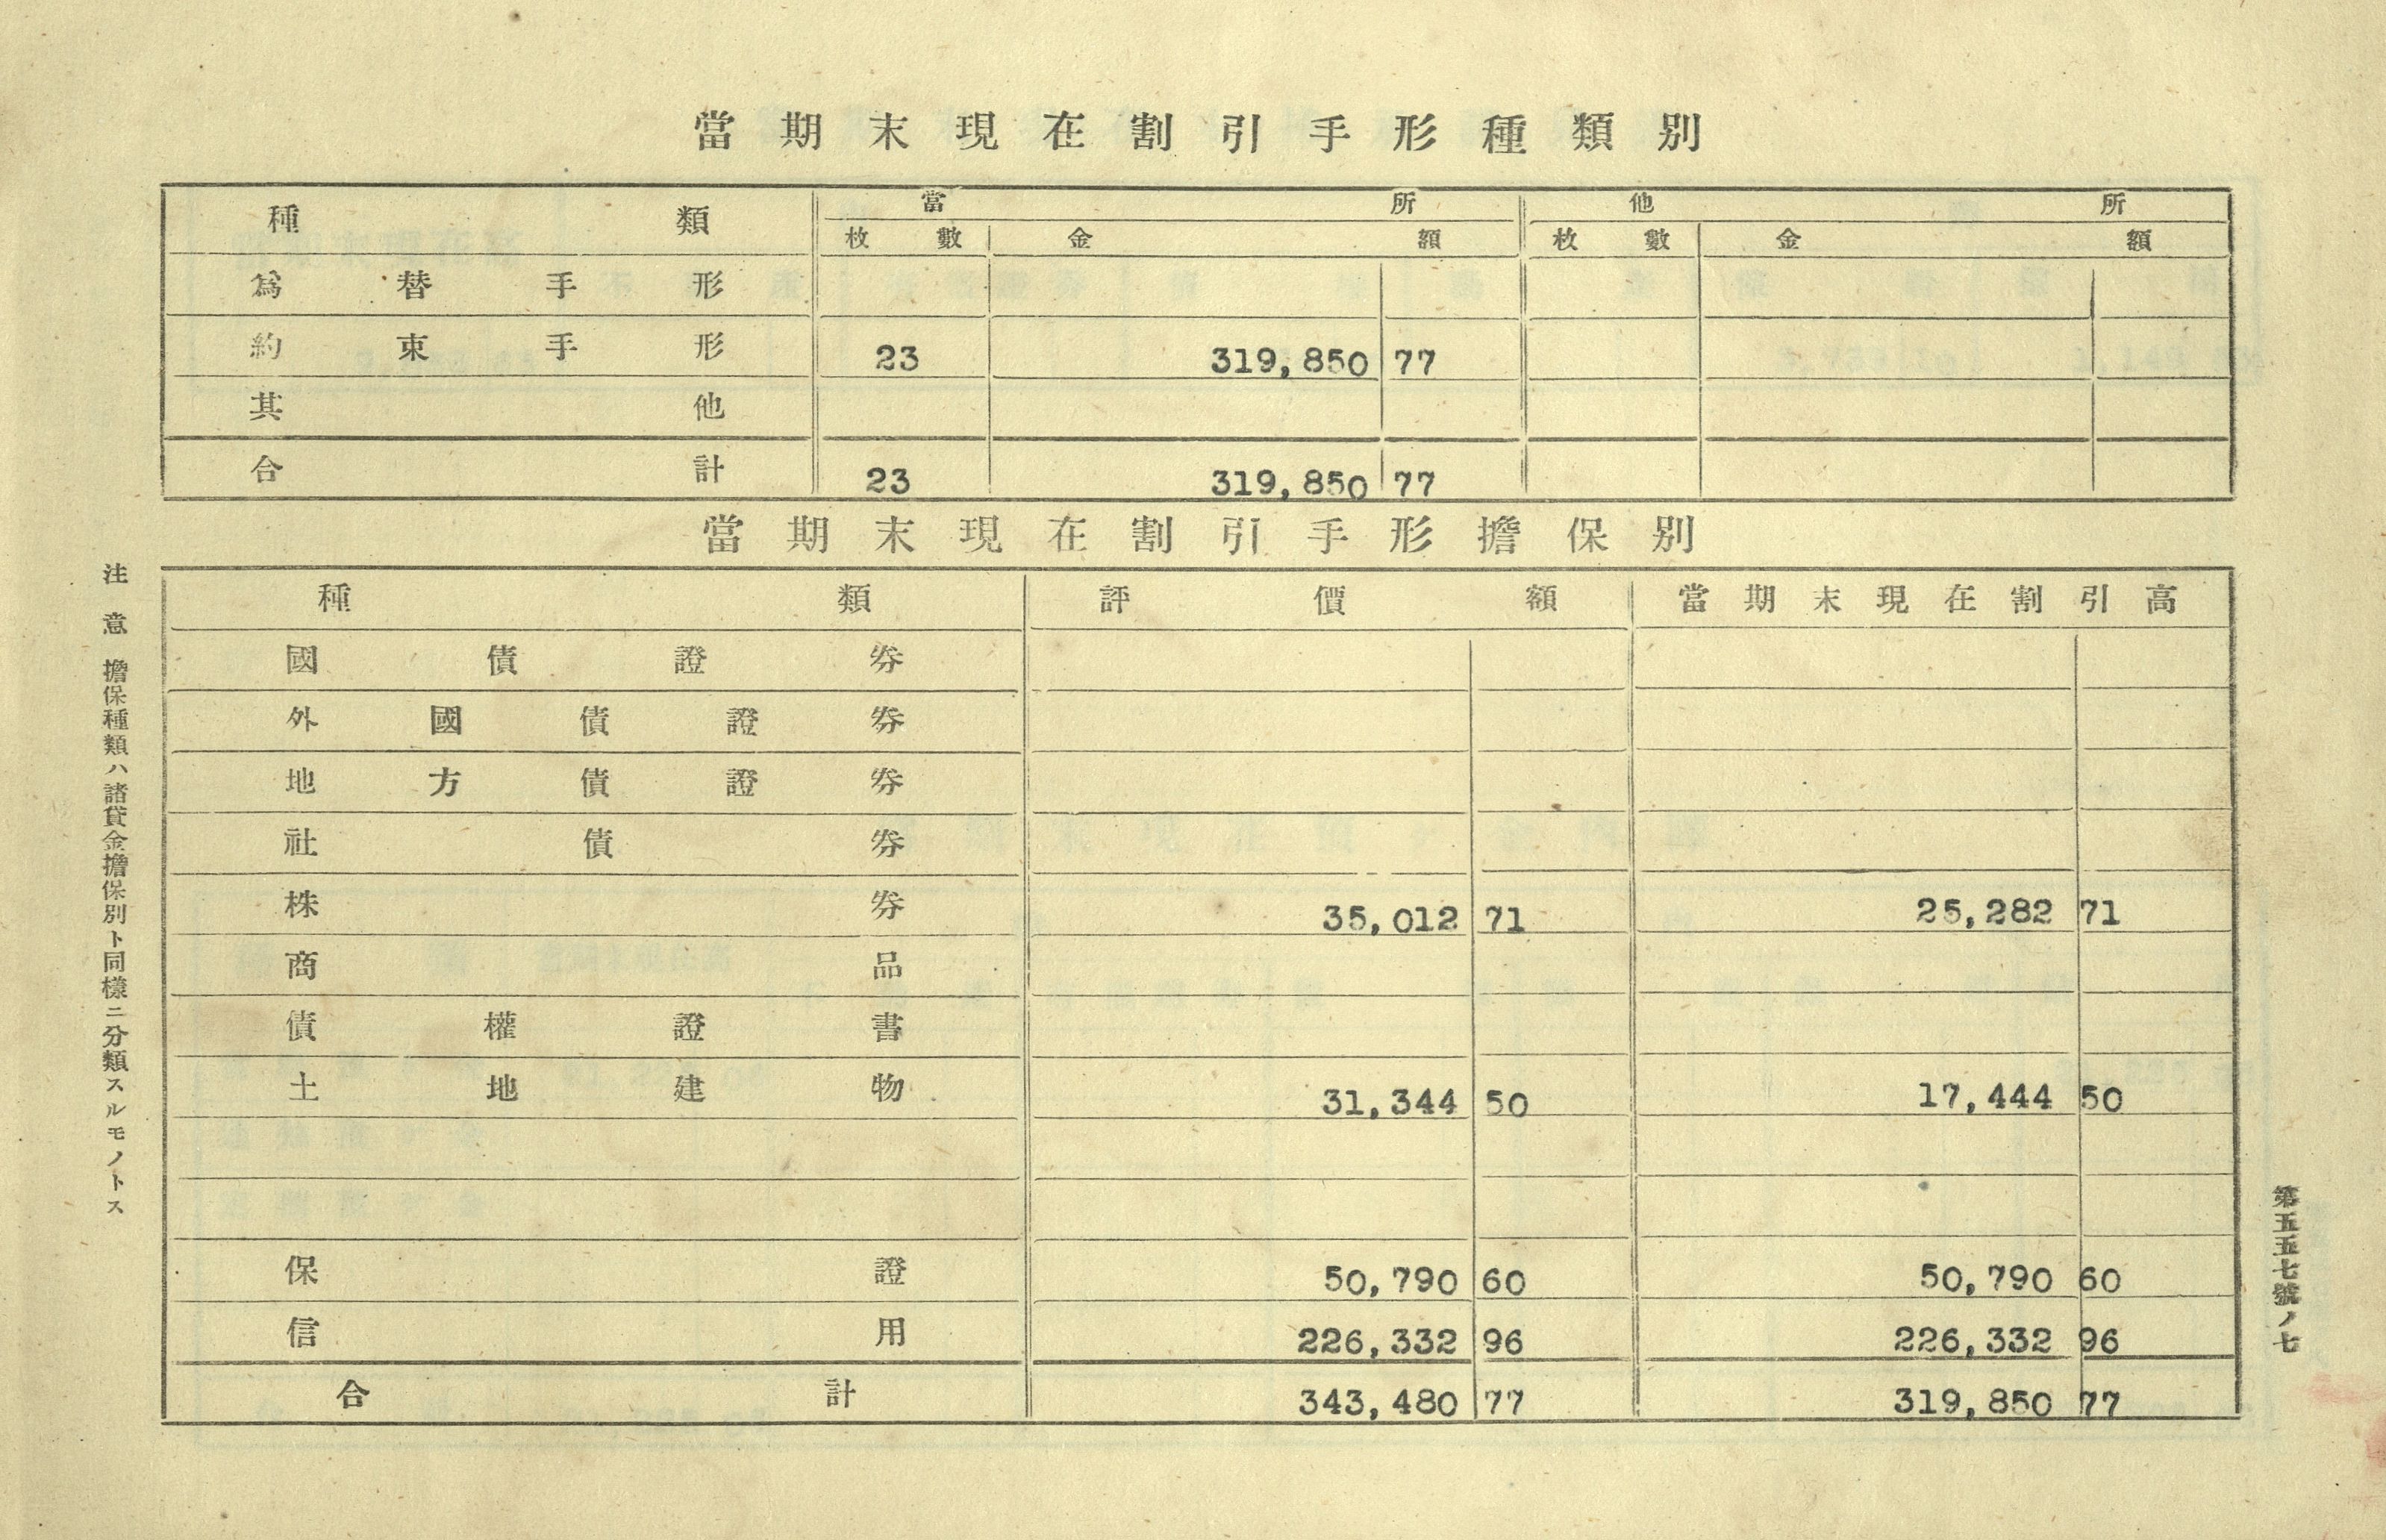 當期末現在割引手形種類別
種類 當所 他所
枚數 金額 枚數 金額
爲替手形
約束手形 23 319,850 77
其他
合計 23 319,850 77
當期末現在割引手形擔保別
種類 評價額 當期末現在割引高
國債證券
外國債證券
地方債證券
社債券
株券 35,012 71 25,282 71
商品
債權證書
土地建物 31,344 50 17,444 50
保證 50,790 60 50,790 60
信用 226,332 96 226,332 96
合計 343,480 77 319,850 77
注意 擔保種類ハ諸貸金擔保別ト同樣ニ分類スルモノトス
第五五七號ノ七